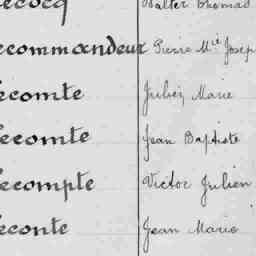 ecocq Walter Thomas
ecommandeur Pierre Mie Josep
ecomte Julien Marie
ecomte Jean Baptiste
ecompte Victor Julien
econte Jean Marie